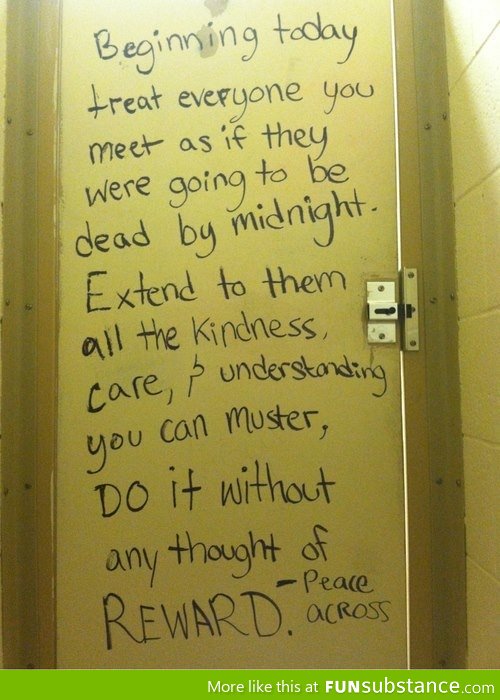 Beginning today
treat everyone you
meet as if they
were going to be
dead by midnight.
Extend to them
all the kindness,
care, & understanding
you can muster,
DO it without
any thought of
REWARD. - Peace
across
More like this at FUNsubstance.com